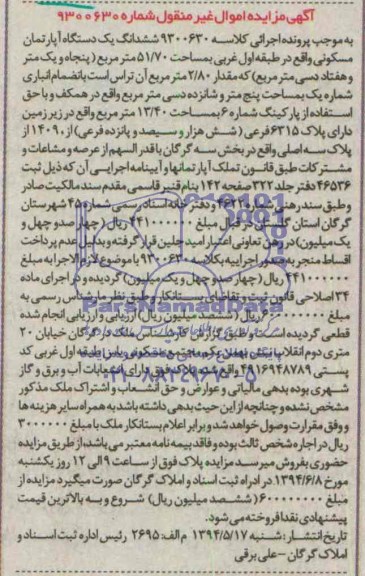 آگهی مزایده اموال غیر منقول شماره ۹۳۰۰۶۳۰
به موجب پرونده اجرائی کلاسه ۹۳۰۰۶۳۰ ششدانگ یک دستگاه آپارتمان
مسکونی واقع در طبقه اول غربی بمساحت ۵۱/۷۰ متر مربع (پنجاه و یک متر
و هفتاد دسی متر مربع) که مقدار ۲/۸۰ متر مربع آن تراس است بانضمام انباری
شماره یک بمساحت پنج متر و شانزده دسی متر مربع واقع در همکف و با حق
استفاده از پارکینگ شماره ۶ بمساحت ۱۳/۴۰ متر مربع واقع در زیر زمین
دارای پلاک ۶۳۱۵ فرعی (شش هزار و سیصد و پانزده فرعی) از ۱۴۰۹۰ از
پلاک سه اصلی واقع در بخش سه گرگان با قدر السهم از عرصه و مشاعات و
مشترکات طبق قانون تملک آپارتمانها و آیینامه اجرایی آن که ذیل ثبت
۴۶۵۳۶ دفتر جلد ۳۲۲ صفحه ۱۴۲ بنام قنبر قاسمی مقدم سند مالکیت صادر
و طبق سند رهنی شماره دفتر خانه اسناد رسمی شماره ۴۵ شهرستان
گرگان استان گلستان در قبال مبلغ ۴۴۱۰۰۰۰۰۰ ریال (چهار صد و چهل و
یک میلیون) در رهن تعاونی اعتبار امید جلین قرار گرفته و بدلیل عدم پرداخت
اقساط منجر به صدور اجراییه بکلاسه ۹۳۰۰۶۳۰ با موضوع لازم الاجرا به مبلغ
۴۴۱۰۰۰۰۰۰ ریال (چهار صد و چهل و یک میلیون) گردیده و در اجرای ماده
۳۴ اصلاحی قانون ثبت و تقاضای بستانکار و طبق نظر کارشناس رسمی به
مبلغ ۶۰۰۰۰۰۰۰۰ ریال (ششصد میلیون ریال) ارزیابی و ارزیابی انجام شده
قطعی گردیده است و طبق گزارش کارشناس ملک در گرگان خیابان ۲۰
متری دوم انقلاب مجتمع مسکونی طبقه اول غربی کد
پستی ۴۹۱۶۹۴۸۷۸۹ واقع شده پلاک فوق دارای انشعابات آب و برق و گاز
شهری بوده بدهی مالیاتی و عوارض و حق انشعاب و اشتراک ملک مذکور
مشخص نشده و چنانچه از این حیث بدهی داشته باشد به همراه سایر هزینه ها
و وفق مقررات وصول خواهد شد و برابر اعلام بستانکار ملک با مبلغ ۳۰۰۰۰۰۰
ریال در اجاره شخص ثالث بوده و فاقد بیمه نامه معتبر می باشد، از طریق مزایده
حضوری بفروش میرسد مزایده پلاک فوق از ساعت ۹ الی ۱۲ روز یکشنبه
مورخ ۱۳۹۴/۶/۸ در اداره ثبت اسناد و املاک گرگان صورت میگیرد مزایده از
مبلغ ۶۰۰۰۰۰۰۰۰ (ششصد میلیون ریال) شروع و به بالاترین قیمت
پیشنهادی نقدا فروخته می شود.
تاریخ انتشار: شنبه ۱۳۹۴/۵/۱۷ م الف: ۲۶۹۵ رئیس اداره ثبت اسناد و
املاک گرگان - علی برقی
ParsNamadData
۰۲۱-۸۸۳۴۹۶۷۰-۵